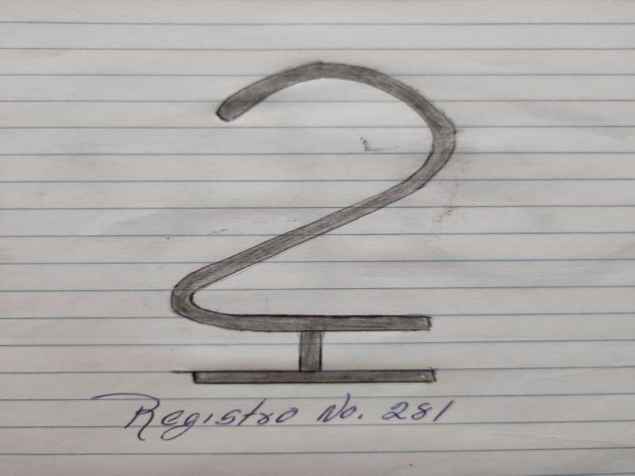 2
Registro No. 281